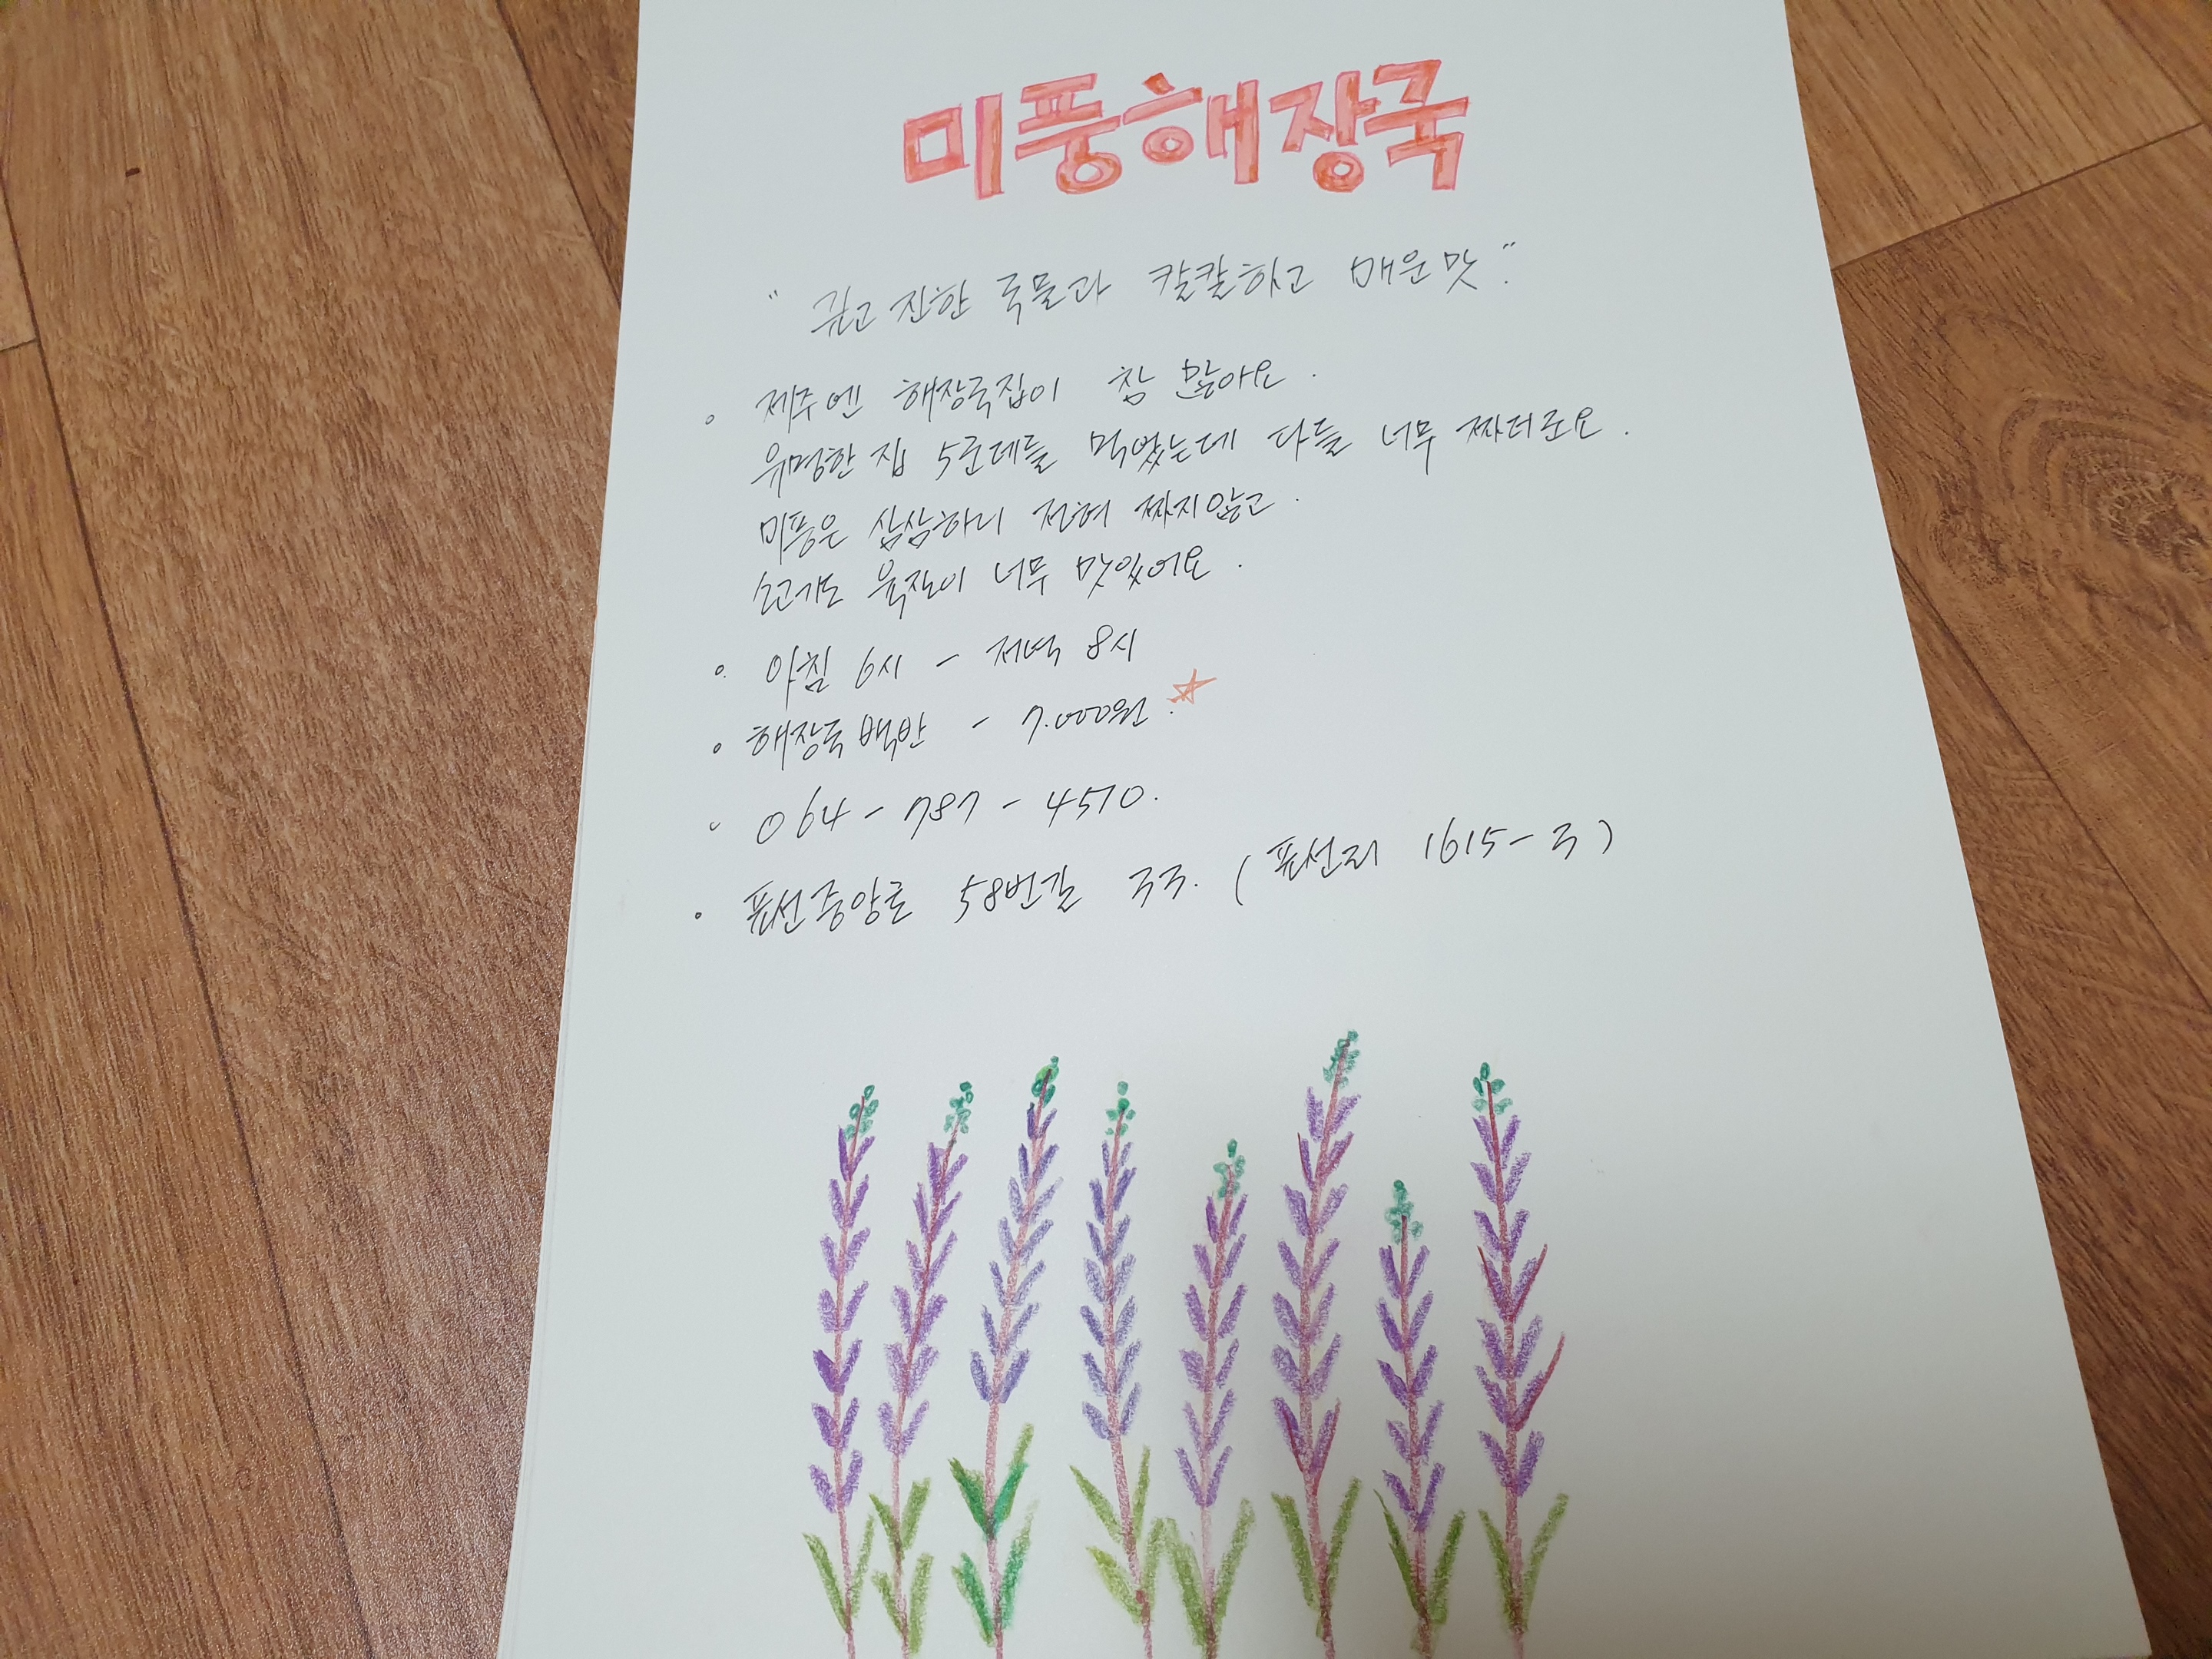 미풍해장국
" 깊고 진한 국물과 칼칼하고 매운맛."
제주엔 해장국집이 참 많아요.
유명한 집 5군데를 먹었는데 다들 너무 짜더군요.
미풍은 삼삼하니 전혀 짜지않고.
소고기도 육질이 너무 맛있어요.
아침 6시 - 저녁 8시
해장국백반 - 7.000원.☆
064 - 787 - 4570.
표선중앙로 58번길 33. (표선리 1615-3)